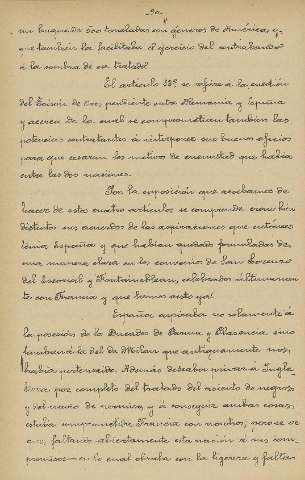 un buque de 500 toneladas con géneros de América, y
que también la facilitaba el ejercicio del contrabando
á la sombra de ese tratado
El artículo 18º se refiere á la cuestión
del Toison de Oro, pendiente entre Alemania y España
y acerca de la cual se comprometian también las
potencias contratantes á interponer sus buenos oficios
para que cesaran los motivos de enemistad que habia
entre las dos naciones.
Por la exposición que acabamos de
hacer de estos cuatro articulos se comprende cuan bien
distintos eran de las aspiraciones que entonces
tenia España y que habian quedado formuladas de
una manera clara en los convenios de San Lorenzo
del Escorial y Fontainebleau, celebrados últimamen
te con Francia y que hemos visto ya.
España aspiraba no solamente á
la posesión de los Ducados de Parma y Plasencia sino
también á la del de Milan que antiguamente nos
habia pertenecido. Además deseaba privar á Ingla
terra por completo del tratado del asiento de negros
y del navio de permiso, y á conseguir ambas cosas
estaba Francia con nosotros,
faltando abiertamente esta nación á sus com
promisos en lo cual obraba con la ligereza y falta